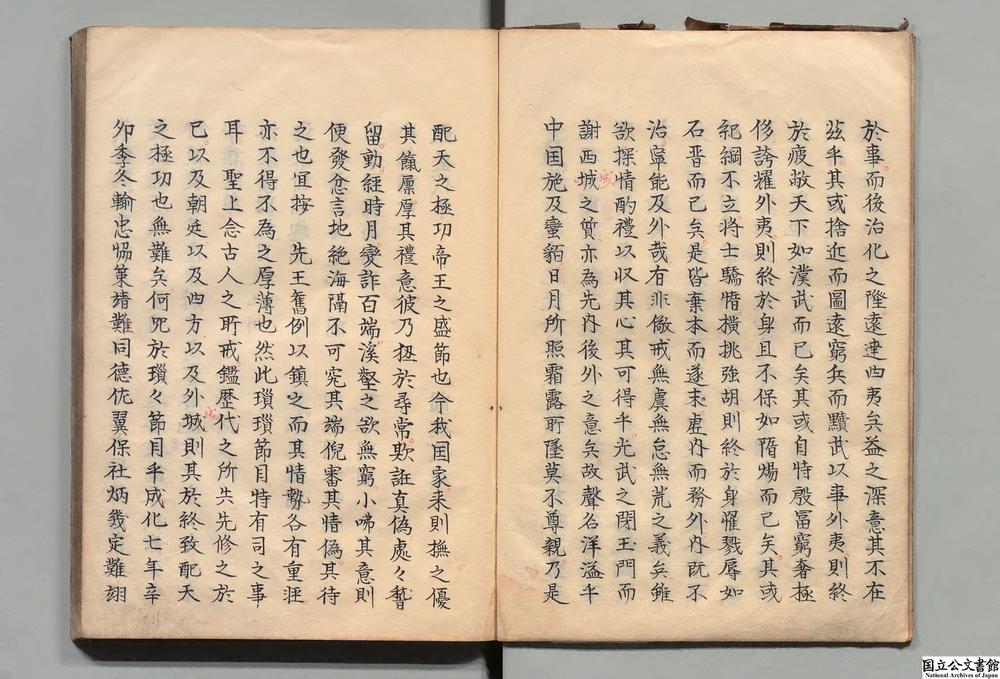 於事而後治化之隆遠達四夷矣益之深意其不在
玆乎其或捨近而圖遠窮兵而黷武以事外夷則終
於疲敝天下如漢武而已矣其或自恃殷富窮奢極
侈誇耀外夷則終於身且不保如隋煬而已矣其或
紀綱不立將士驕惰橫挑強胡則終於身罹戮辱如
石晋而已矣是皆棄本而遂末虛内而務外内旣不
治寧能及外哉有非儆戒無虞無怠無荒之義矣雖
欲探情酌禮以収其心其可得乎光武之閉玉門而
謝西城之質亦為先内後外之意矣故聲名洋溢乎
域
中国施及蠻貊日月所照霜露所墜莫不尊親乃是
配天之極功帝王之盛節也今我国家来則撫之優
其餼廩厚其禮意彼乃狃於尋常欺誑真偽處々䅵
留動經時月變詐百端溪壑之欲無窮小咈其意則
便發忿言地絶海隔不可究其端倪審其情偽其待
之也宜按先王舊例以鎮之而其情勢各有重
亦不得不為之厚薄也然此瑣瑣節目特有司之事
耳聖上念古人之所戒鑑歴代之所失先修之於
己以及朝廷以及四方以及外城則其於終致配天
域
之極功也無難矣何況於瑣々節目乎成化七年辛
卯季冬輸忠協策靖難同德佐翼保社炳幾定難翊
国立公文書館
National Archives of Japan